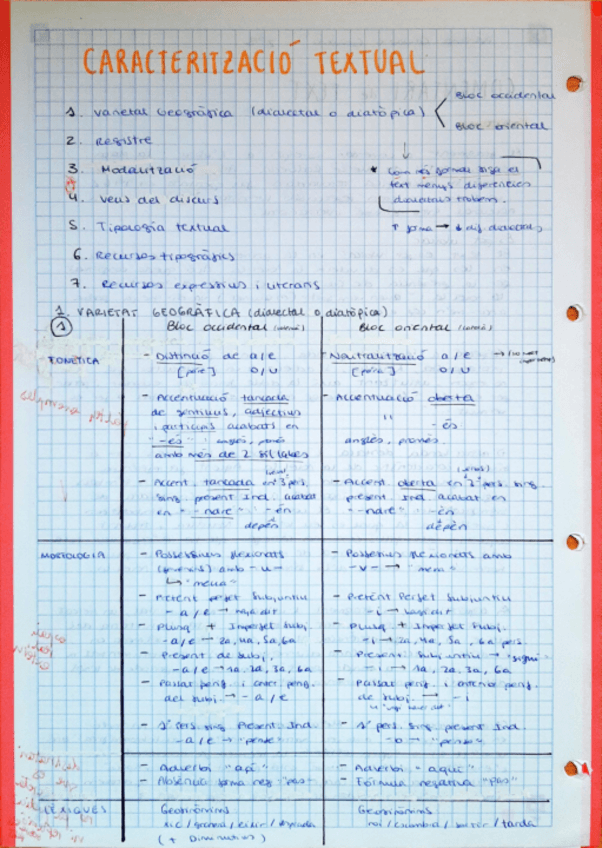 CARACTERITZACIÓ TEXTUAL
1. Varietat Geogràfica (dialectal o diatòpica)
Bloc occidental
Bloc oriental
2. Registre
3. Modalització
4. Veus del discurs
5. Tipologia textual
6. Recursos tipogràfics
7. Recursos expressius i literaris
* Com més formal siga el
text menys diferències
dialectals trobem.
↑ forma → ↓ dif. dialectals
1. VARIETAT GEOGRÀFICA (dialectal o diatòpica)
1
Bloc occidental
Bloc oriental
FONÈTICA
- Distinció de a/e
[pare] o/u
- Accentuació tancada
de gentilicis, adjectius
i participis acabats en
"-és" anglés, promés
amb més de 2 síl·labes
- Accent. tancada en 3ª pers.
sing. present Ind. acabat
en "-ndre" -én
depén
- Neutralització a/e
[pare] o/u
- Accentuació oberta
"
-ès
anglès, promès.
- Accent. oberta en 3ª pers. sing.
present Ind. acabat en
"-ndre" -èn
depèn
MORFOLOGIA
- Possessius flexionats
amb -u-
↳ "meua"
- Pretèrit perfet Subjuntiu
-a/e → haja dit
- Plusq. + Imperfet Subj.
-a/e → 2a, 4a, 5a, 6a
- Present de Subj.
-a/e → 1a, 2a, 3a, 6a
- Passat perif. i anter. perif.
del subj. → -a/e
- 1ª Pers. sing. Present Ind.
-a/e → "pense"
- Possessius flexionats amb
-v- → "meva"
- Pretèrit Perfet Subjuntiu
-i → hagi dit
- Plusq. + Imperfet Subj.
-i → 2a, 4a, 5a, 6a pers.
- Present Subjuntiu → "sigui"
-i → 1a, 2a, 3a, 6a
- Passat perif. i anterior perif.
de subj. → -i
- 1ª pers. sing. present Ind.
-o → "penso"
- Adverbi "ací"
- Absència forma neg. "pas"
- Adverbi "aquí"
- Fórmula negativa "pas"
LÈXIQUES
Geosinònims
xic / granera / eixir / vesprada
(+ Diminutius)
Geosinònims
noi / escombra / sortir / tarda